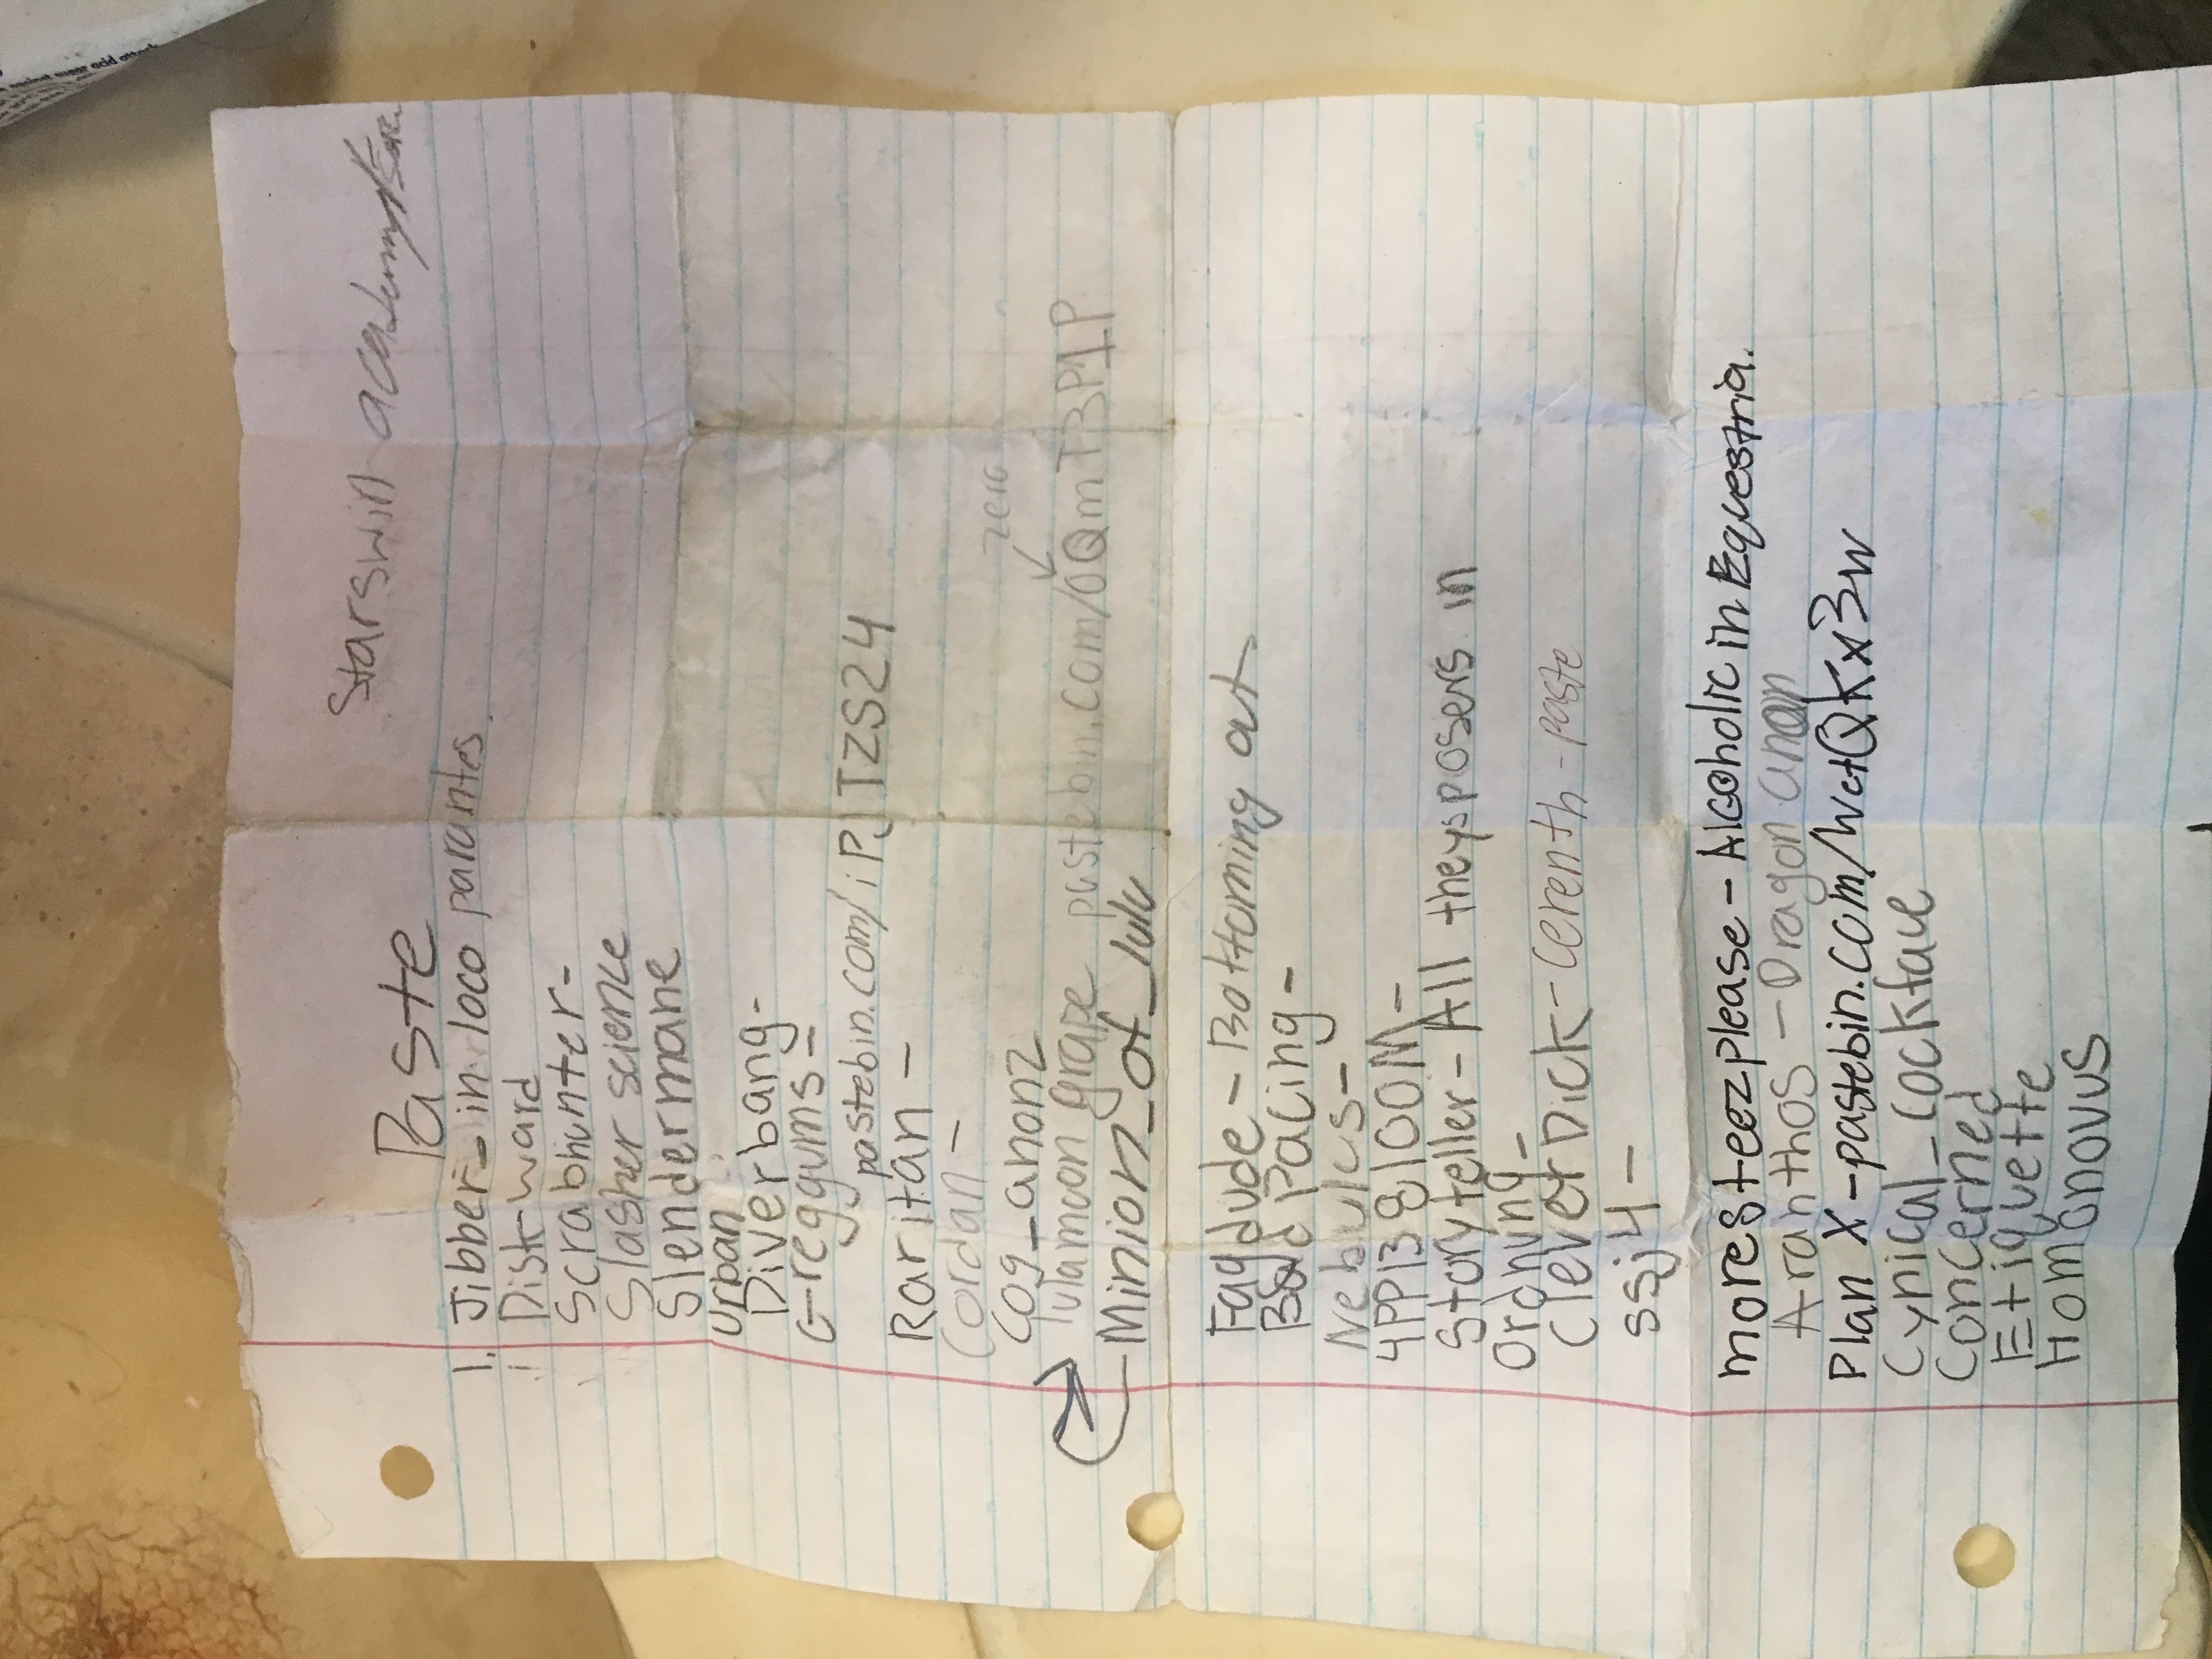 Starswirl academy
Paste
1. Jibber-in loco parantes
Diskward
Scrabhunter-
Slasher science
Slendermane
Urban
Diverbang-
Greggums-
pastebin.com/iPJTZS24
Raritan -
Cordan -
Cog_anon2
zero
Tulamoon grape pastebin.com/0QmT3P1P
Minion_of_lulu
Fagdude - Bottoming out
Bad Pacing -
Nebulus -
4PP138100M -
Storyteller - All theysposers in
Ordnung -
Clever Dick - Cerenth - paste
ssj4 -
moresteezplease - Alcoholic in Equestria.
Aranthos - Dragon anon
Plan X - pastebin.com/WetQKx3w
Cynical_Cockfaue
Concerned
Etiquette
Homonovus
against sugar acid attack